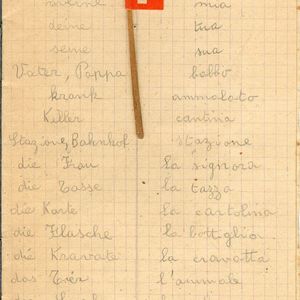 meine mia
deine tua
seine sua
Vater, Pappa babbo
krank ammalato
Keller cantina
Stazione, Bahnhof stazione
die Frau la signora
die Tasse la tazza
die Karte la cartolina
die Flasche la bottiglia
die Kravatte la cravatta
das Tier l'animale